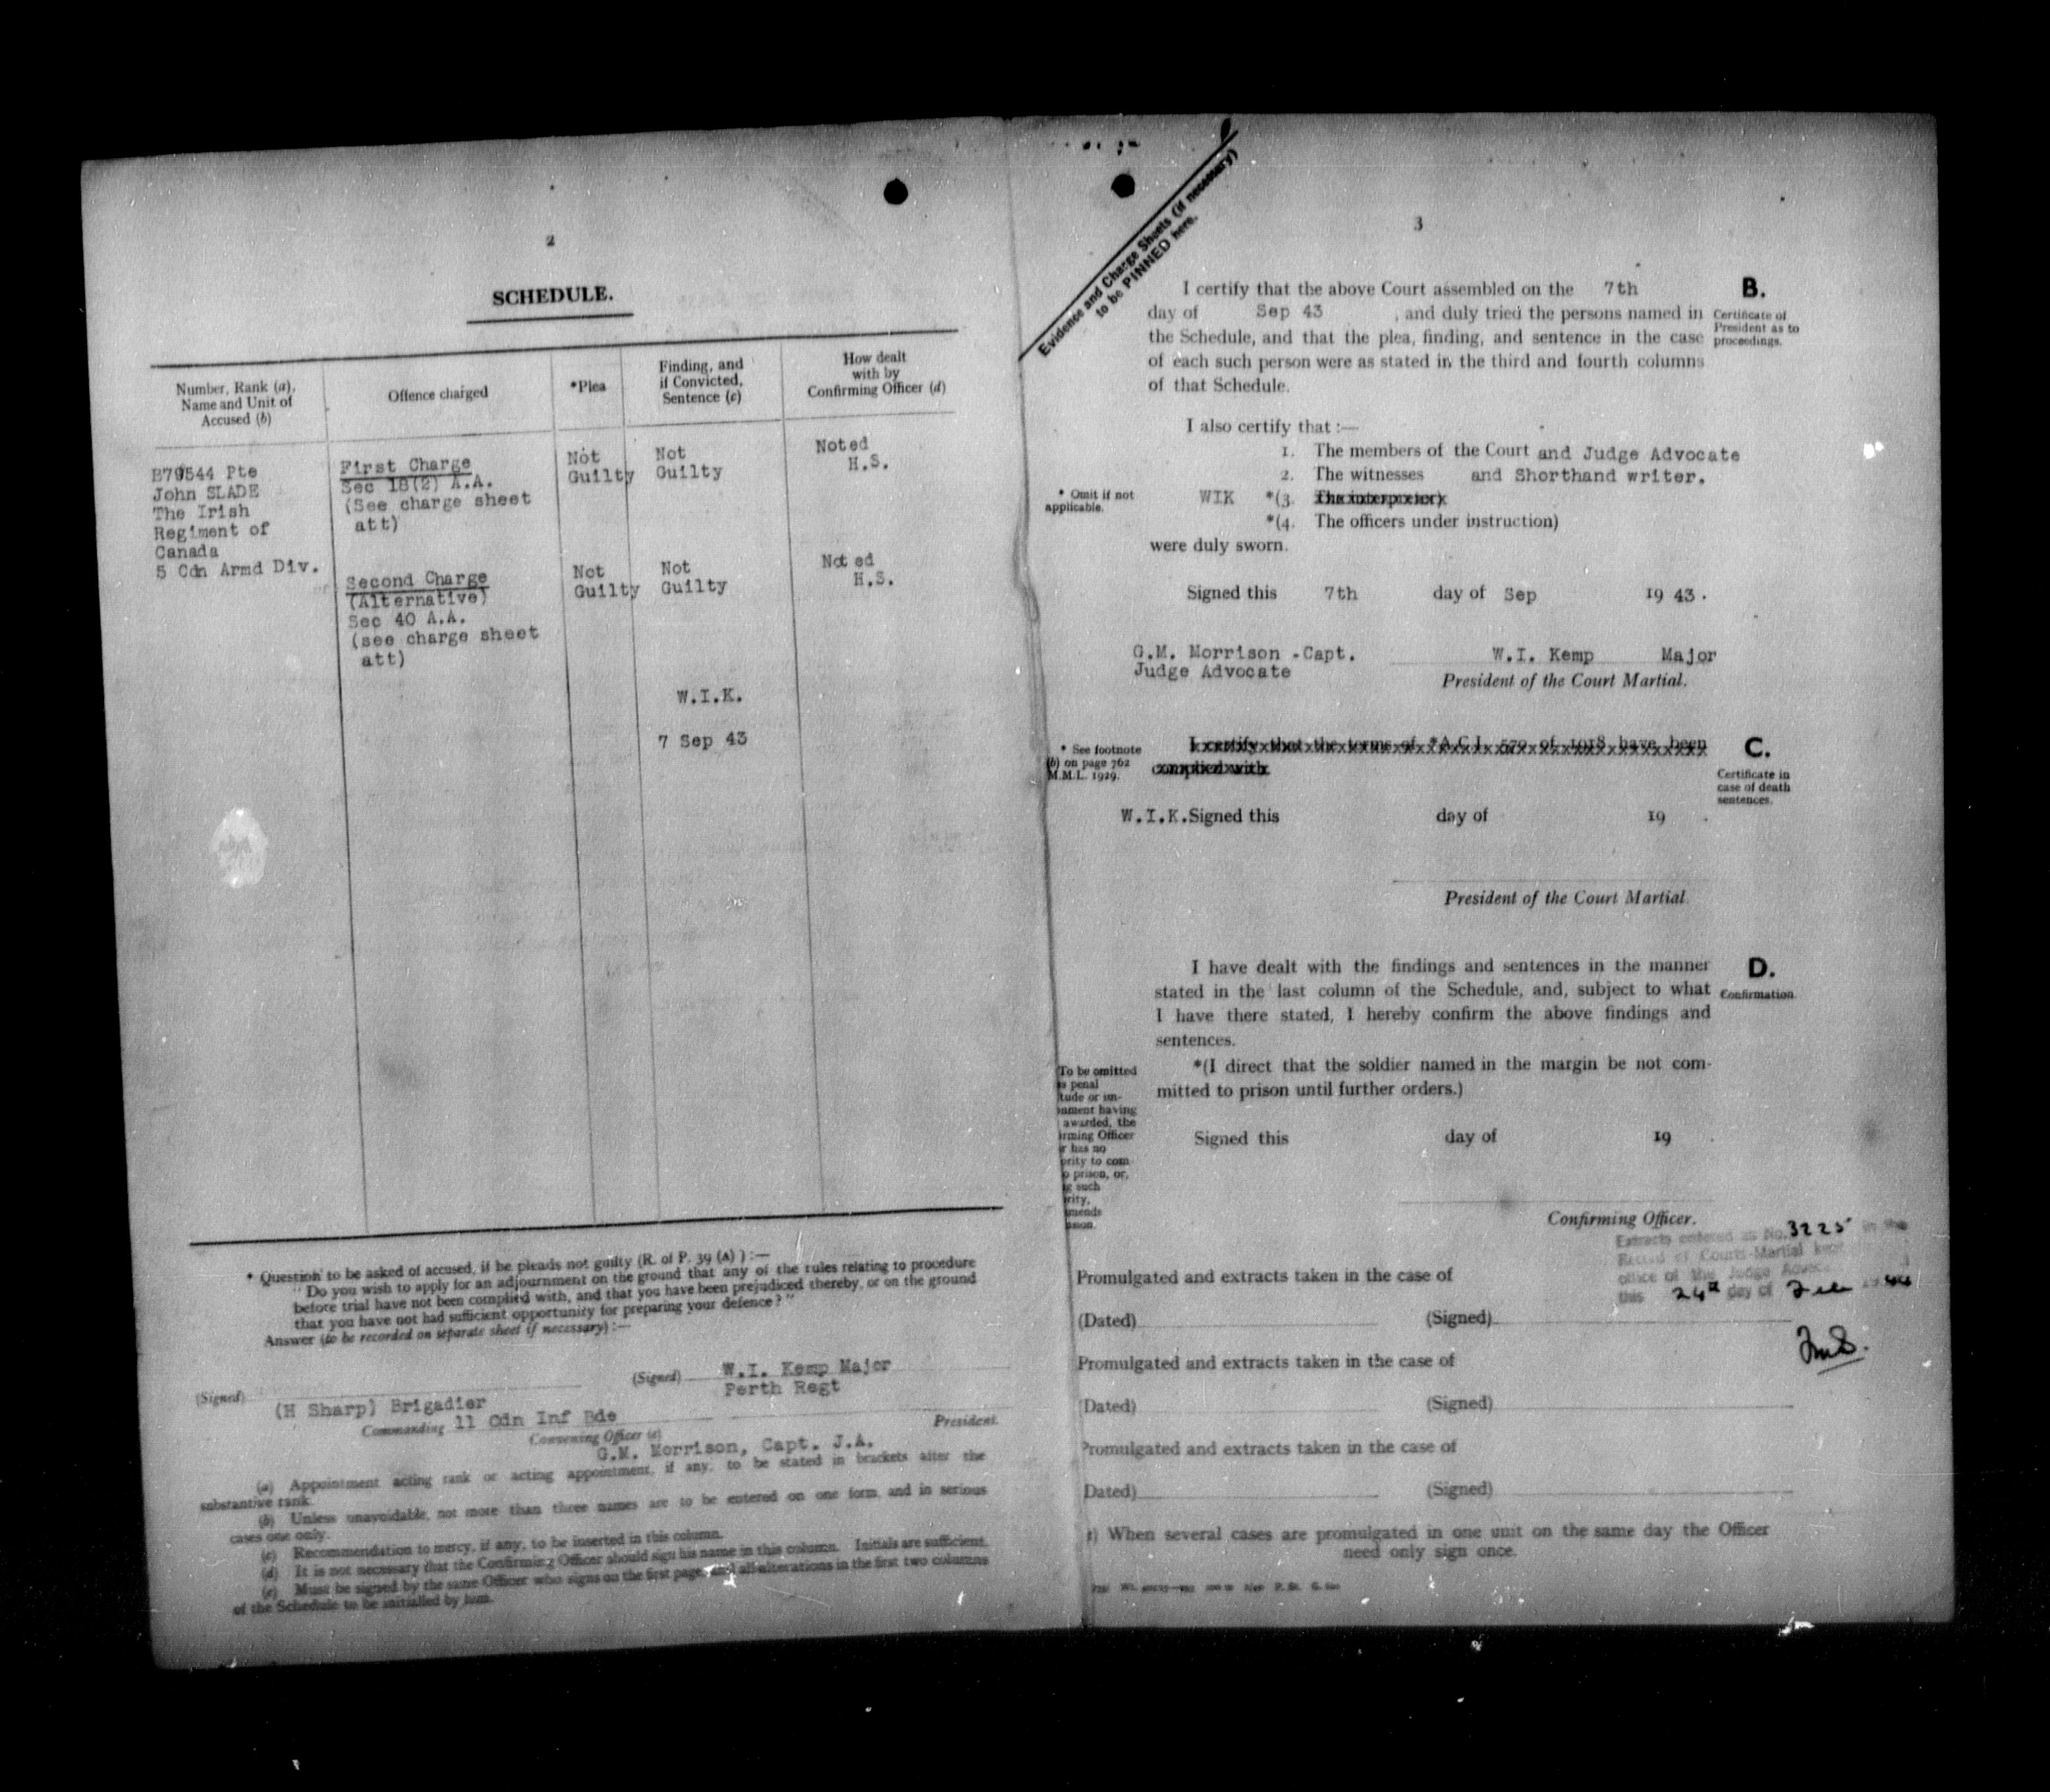 2
SCHEDULE.
Number, Rank (a),
Name and Unit of
Accused (b)
Offence charged
*Plea
Finding, and
if Convicted,
Sentence (c)
How dealt
with by
Confirming Officer (d)
B79544 Pte
John SLADE
The Irish
Regiment of
Canada
5 Cdn Armd Div.
First Charge
Sec 18(2) A.A.
(See charge sheet
att)
Not
Guilty
Not
Guilty
Noted
H.S.
Second Charge
(Alternative)
Sec 40 A.A.
(see charge sheet
att)
Not
Guilty
Not
Guilty
Noted
H.S.
W.I.K.
7 Sep 43
* Question to be asked of accused, if he pleads not guilty (R. of P. 39 (A) ) :—
" Do you wish to apply for an adjournment on the ground that any of the rules relating to procedure
before trial have not been complied with, and that you have been prejudiced thereby, or on the ground
that you have not had sufficient opportunity for preparing your defence ? "
Answer (to be recorded on separate sheet if necessary) :—
(Signed)
(H Sharp) Brigadier
Commanding 11 Cdn Inf Bde
Convening Officer (e)
(Signed) W.I. Kemp Major
Perth Regt
President.
G.M. Morrison, Capt. J.A.
(a) Appointment acting rank or acting appointment, if any, to be stated in brackets after the
substantive rank.
(b) Unless unavoidable, not more than three names are to be entered on one form, and in serious
cases one only.
(c) Recommendation to mercy, if any, to be inserted in this column.
(d) It is not necessary that the Confirming Officer should sign his name in this column. Initials are sufficient.
(e) Must be signed by the same Officer who signs on the first page, and all alterations in the first two columns
of the Schedule to be initialled by him.
Evidence and Charge Sheets (if necessary)
to be PINNED here.
3
I certify that the above Court assembled on the 7th
day of Sep 43 , and duly tried the persons named in
the Schedule, and that the plea, finding, and sentence in the case
of each such person were as stated in the third and fourth columns
of that Schedule.
B.
Certificate of
President as to
proceedings.
I also certify that :—
1. The members of the Court and Judge Advocate
2. The witnesses and Shorthand writer.
* Omit if not
applicable.
WIK *(3. The interpreter)
*(4. The officers under instruction)
were duly sworn.
Signed this 7th day of Sep 19 43.
G.M. Morrison - Capt.
Judge Advocate
W.I. Kemp Major
President of the Court Martial.
* See footnote
(b) on page 762
M.M.L. 1929.
I certify that the terms of *A.C.I. 570 of 1918 have been
complied with
C.
Certificate in
case of death
sentences.
W.I.K. Signed this day of 19 .
President of the Court Martial
I have dealt with the findings and sentences in the manner
stated in the last column of the Schedule, and, subject to what
I have there stated, I hereby confirm the above findings and
sentences.
D.
Confirmation.
*(I direct that the soldier named in the margin be not com-
mitted to prison until further orders.)
To be omitted
penal
tude or im-
nment having
awarded, the
rming Officer
r has no
ority to com
o prison, or,
g such
rity,
mends
nsion.
Signed this day of 19 .
Confirming Officer.
Extracts entered as No. 3225 in the
Record of Courts-Martial kept
office of the Judge Advoc
this 24th day of Feb 1944
Promulgated and extracts taken in the case of
(Dated) (Signed)
Promulgated and extracts taken in the case of
(Dated) (Signed)
Promulgated and extracts taken in the case of
(Dated) (Signed)
When several cases are promulgated in one unit on the same day the Officer
need only sign once.